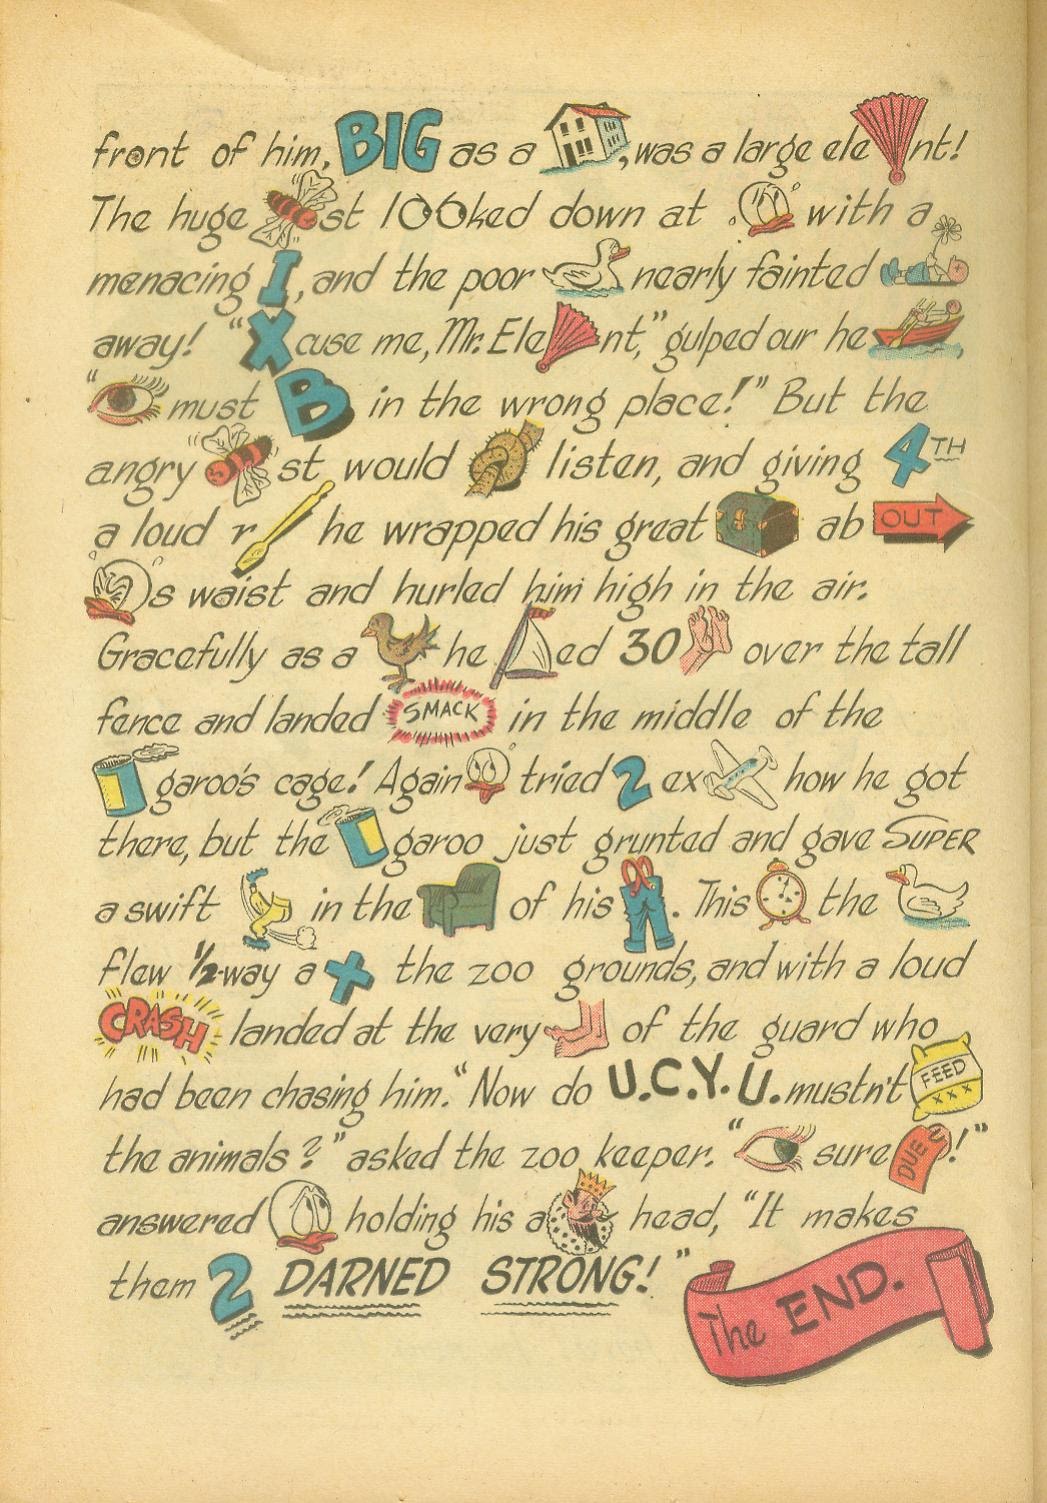 front of him, BIG as a , was a large ele nt!
The huge st looked down at with a
menacing I, and the poor nearly fainted
away! "X cuse me, Mr. Ele nt," gulped our he ,
" must B in the wrong place!" But the
angry st would listen, and giving 4TH
a loud r he wrapped his great ab OUT
s waist and hurled him high in the air.
Gracefully as a he ed 30 over the tall
fence and landed SMACK in the middle of the
garoo's cage! Again tried 2 ex how he got
there, but the garoo just grunted and gave SUPER
a swift in the of his . This the
flew 1/2-way a + the zoo grounds, and with a loud
CRASH landed at the very of the guard who
had been chasing him. "Now do U.C.Y.U. mustn't FEED XXX
the animals?" asked the zoo keeper. " sure DUE 2 !"
answered holding his a head, "It makes
them 2 DARNED STRONG!"
The END.